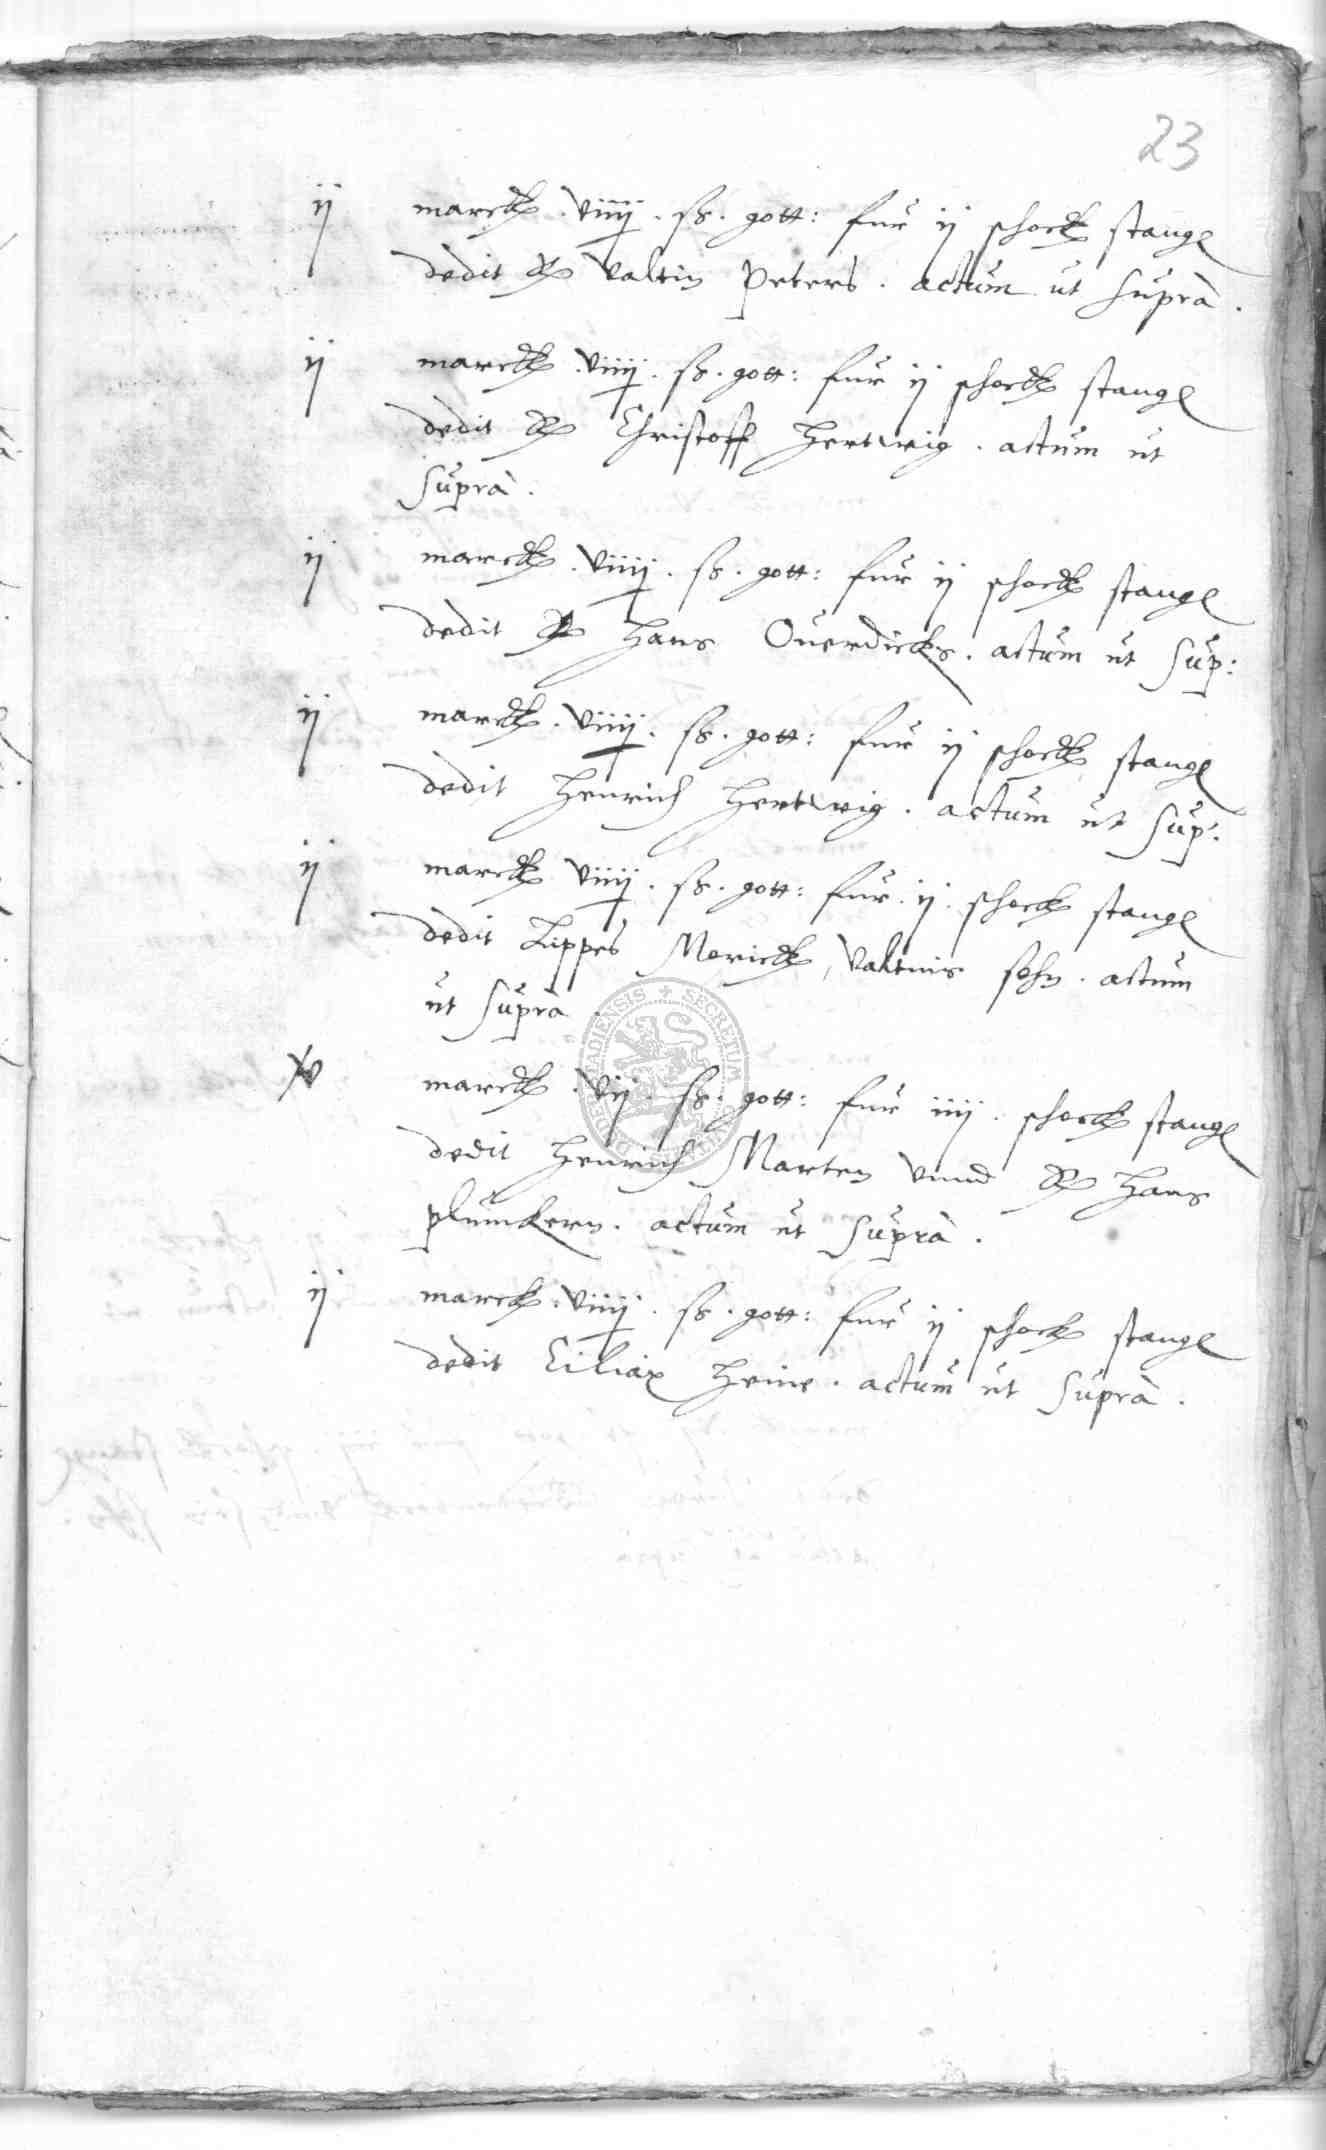 23
ij marck . viiij . ss . gott: fur ij schock stang
dedit Valtin Peters . actum ut supra .
ij marck . viiij . ss . gott: fur ij schock stang
dedit Christoff Hertwig . actum ut
supra .
ij marck . viiij . ss . gott: fur ij schock stang
dedit Hans Ouerdicks . actum ut sup:
ij marck . viiij . ss . gott: fur ij schock stang
dedit Henrich Hertwig . actum ut sup:
ij marck viiij . ss . gott: fur . ij . schock stang
dedit Lippes Morick, Valtins sohn . actum
ut supra .
v marck . vij . ss . gott: fur iiij . schock stang
dedit Henrich Marten vnnd Hans
plumkern . actum ut supra .
ij marck . viiij . ss . gott: fur ij schock stang
dedit Ciliax Heine . actum ut supra .
SECRETUM